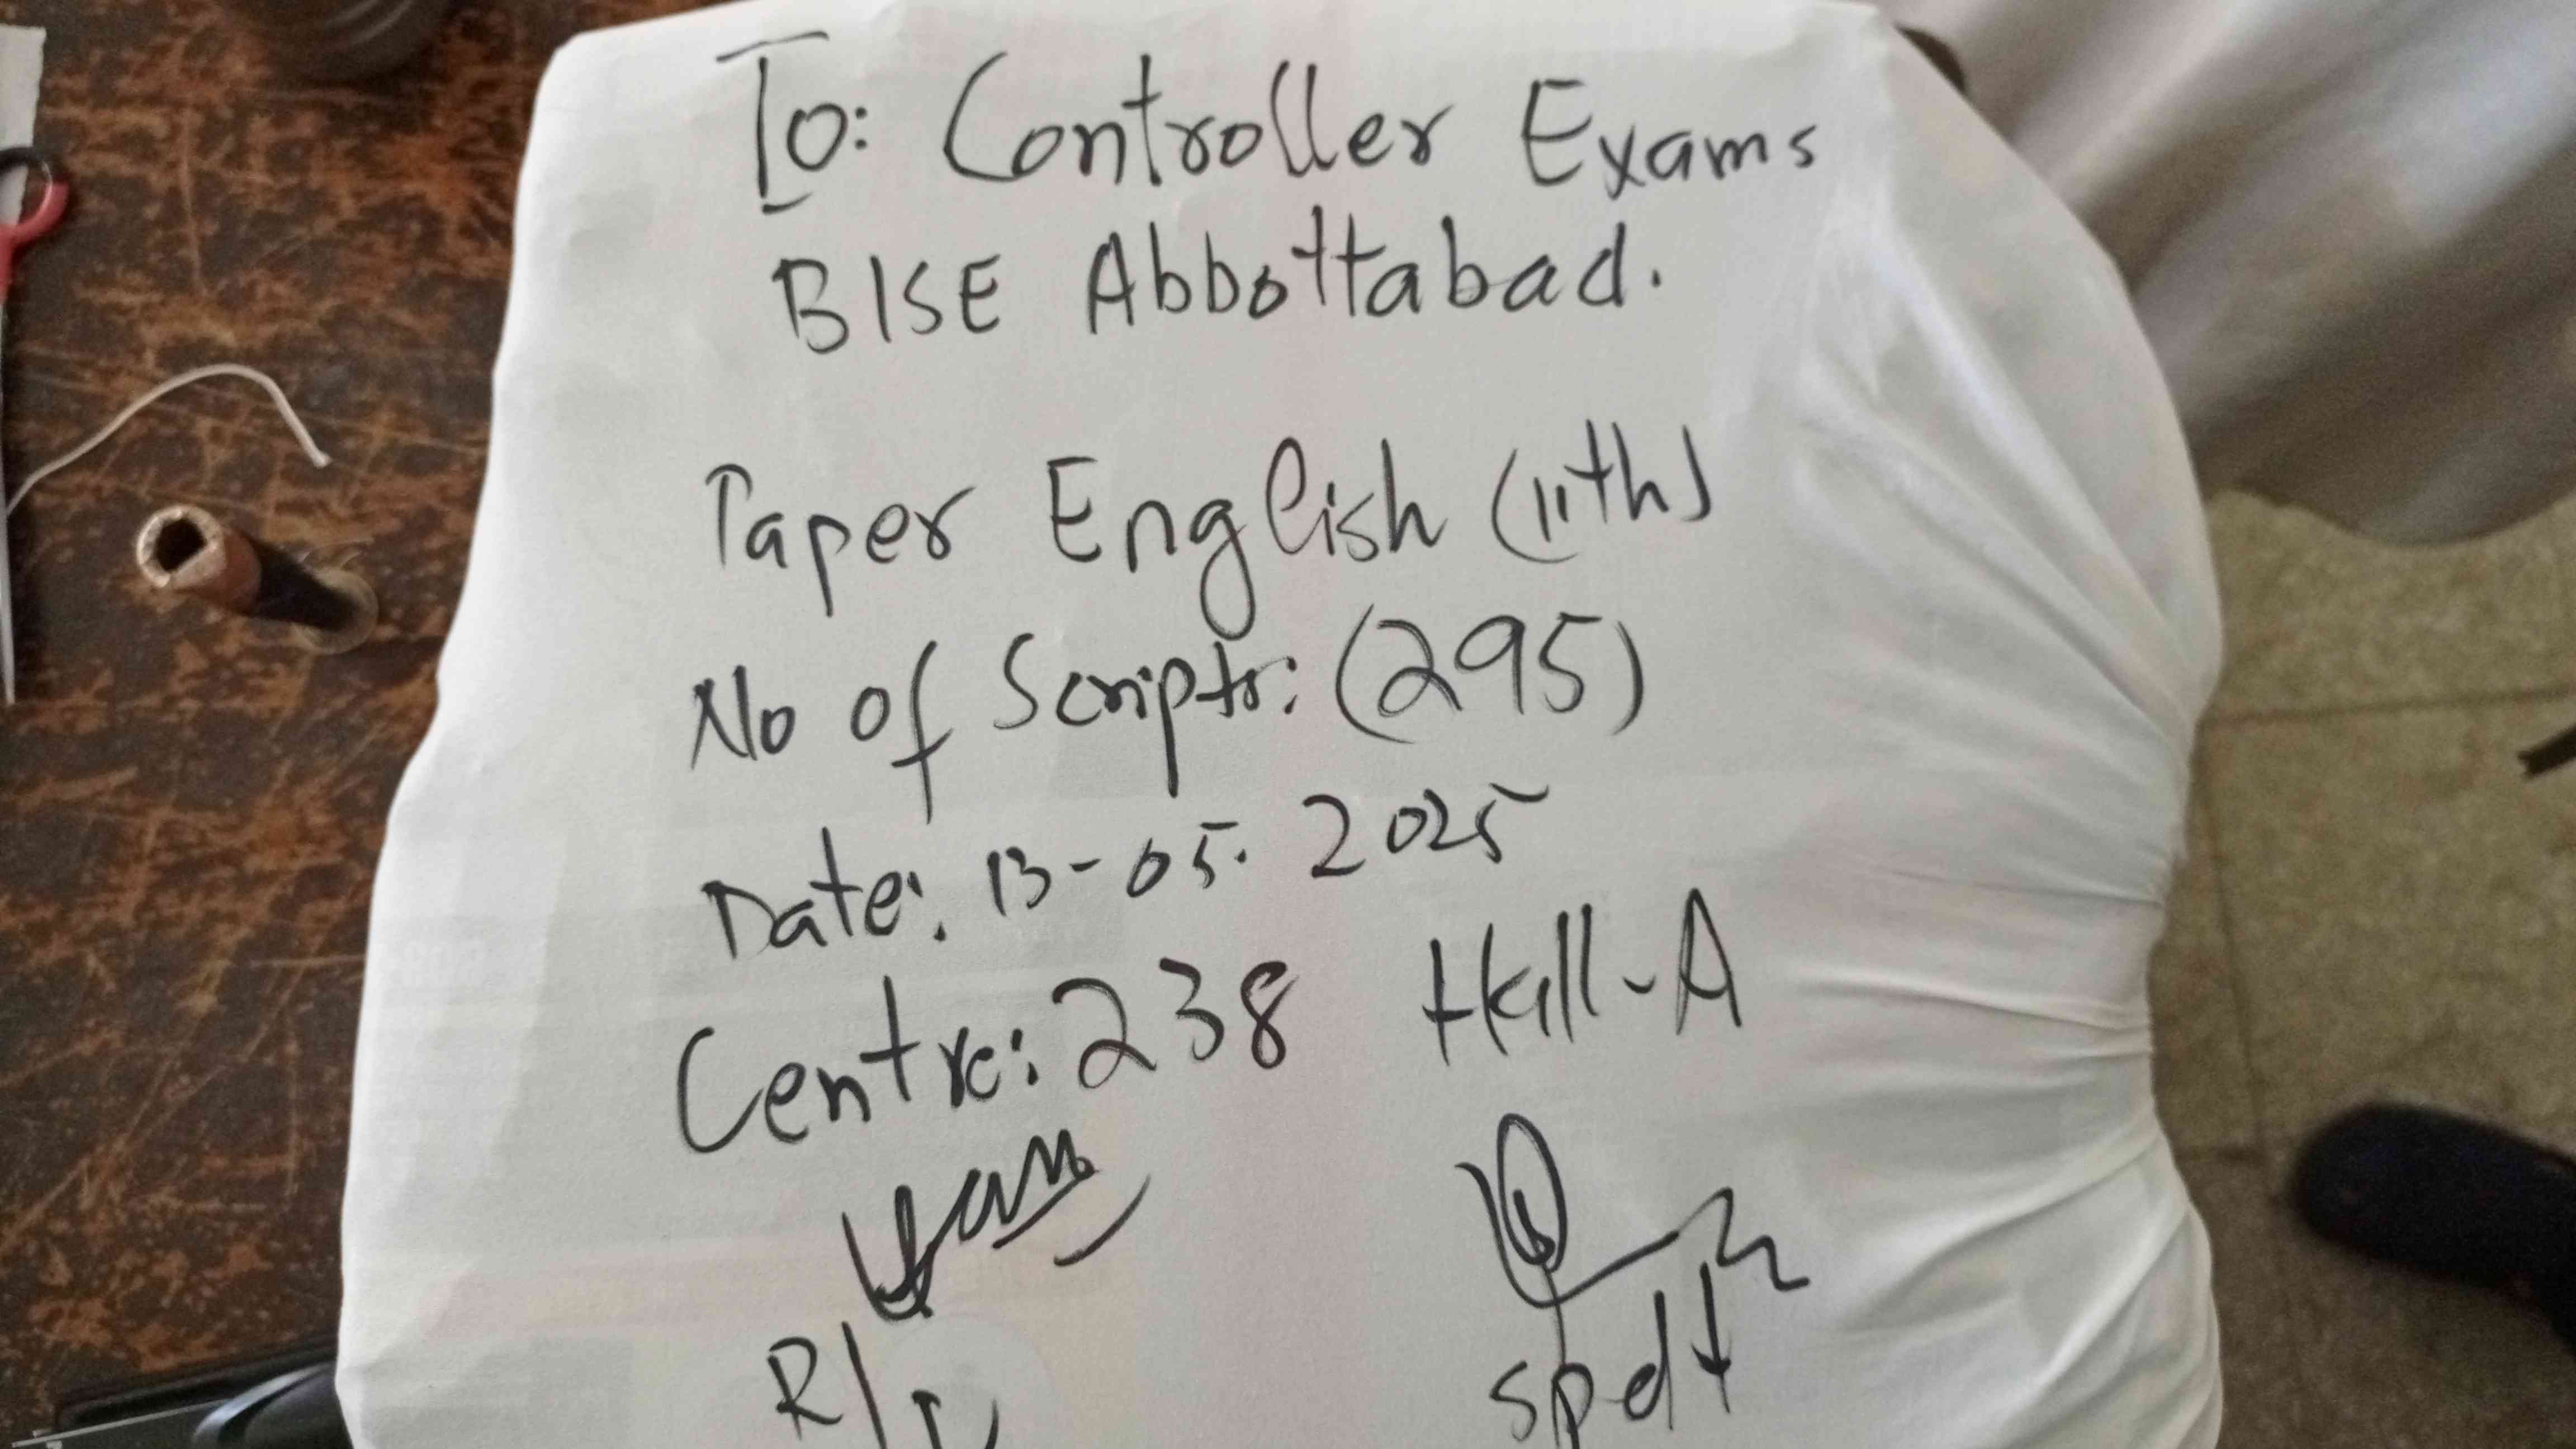 To: Controller Exams
BISE Abbottabad.
Paper English (11th)
No of Scripts: (295)
Date: 13-05. 2025
Centre: 238 Hall-A
R/I
Spdt